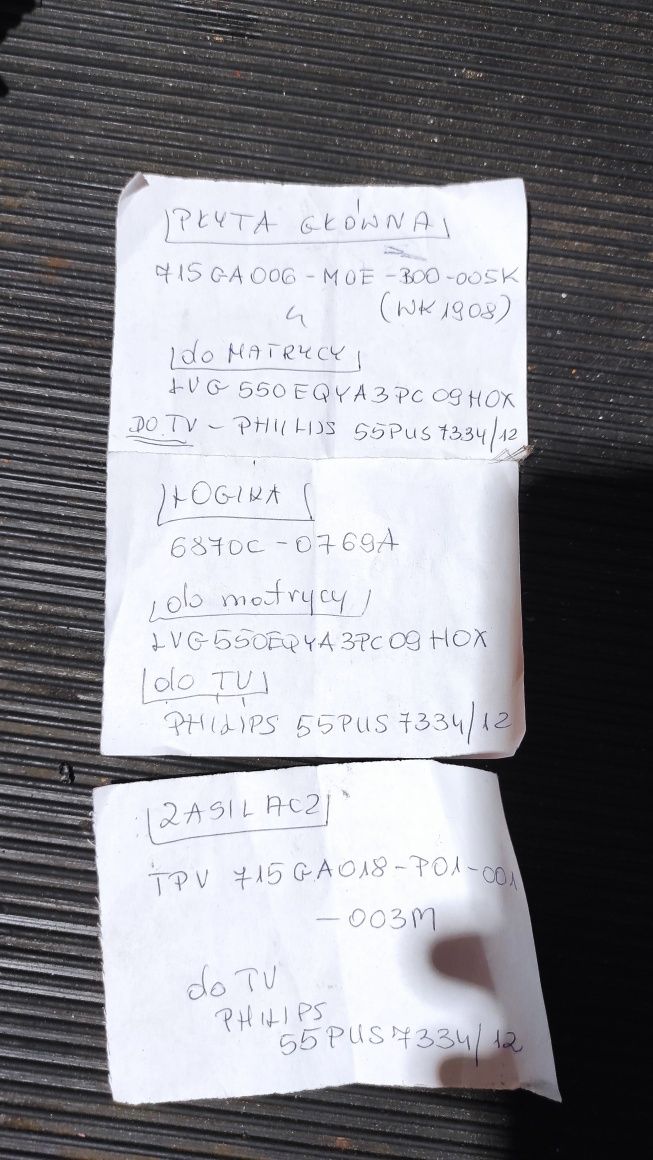 PŁYTA GŁÓWNA
715GA006-M0E-B00-005K
(WK1908)
do MATRYCY
LVG550EQYA3PC09H0X
DO TV - PHILIPS 55PUS7334/12
LOGIKA
6870C-0769A
do matrycy
LVG550EQYA3PC09H0X
do TV
PHILIPS 55PUS7334/12
ZASILACZ
TPV 715GA018-P01-001
-003M
do TV
PHILIPS
55PUS7334/12